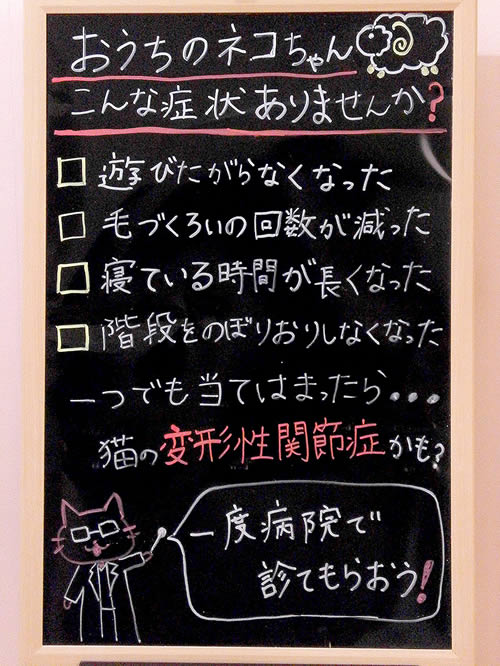 おうちのネコちゃん
こんな症状ありませんか?
□ 遊びたがらなくなった
□ 毛づくろいの回数が減った
□ 寝ている時間が長くなった
□ 階段をのぼりおりしなくなった
一つでも当てはまったら・・・
猫の変形性関節症かも?
一度病院で
診てもらおう!